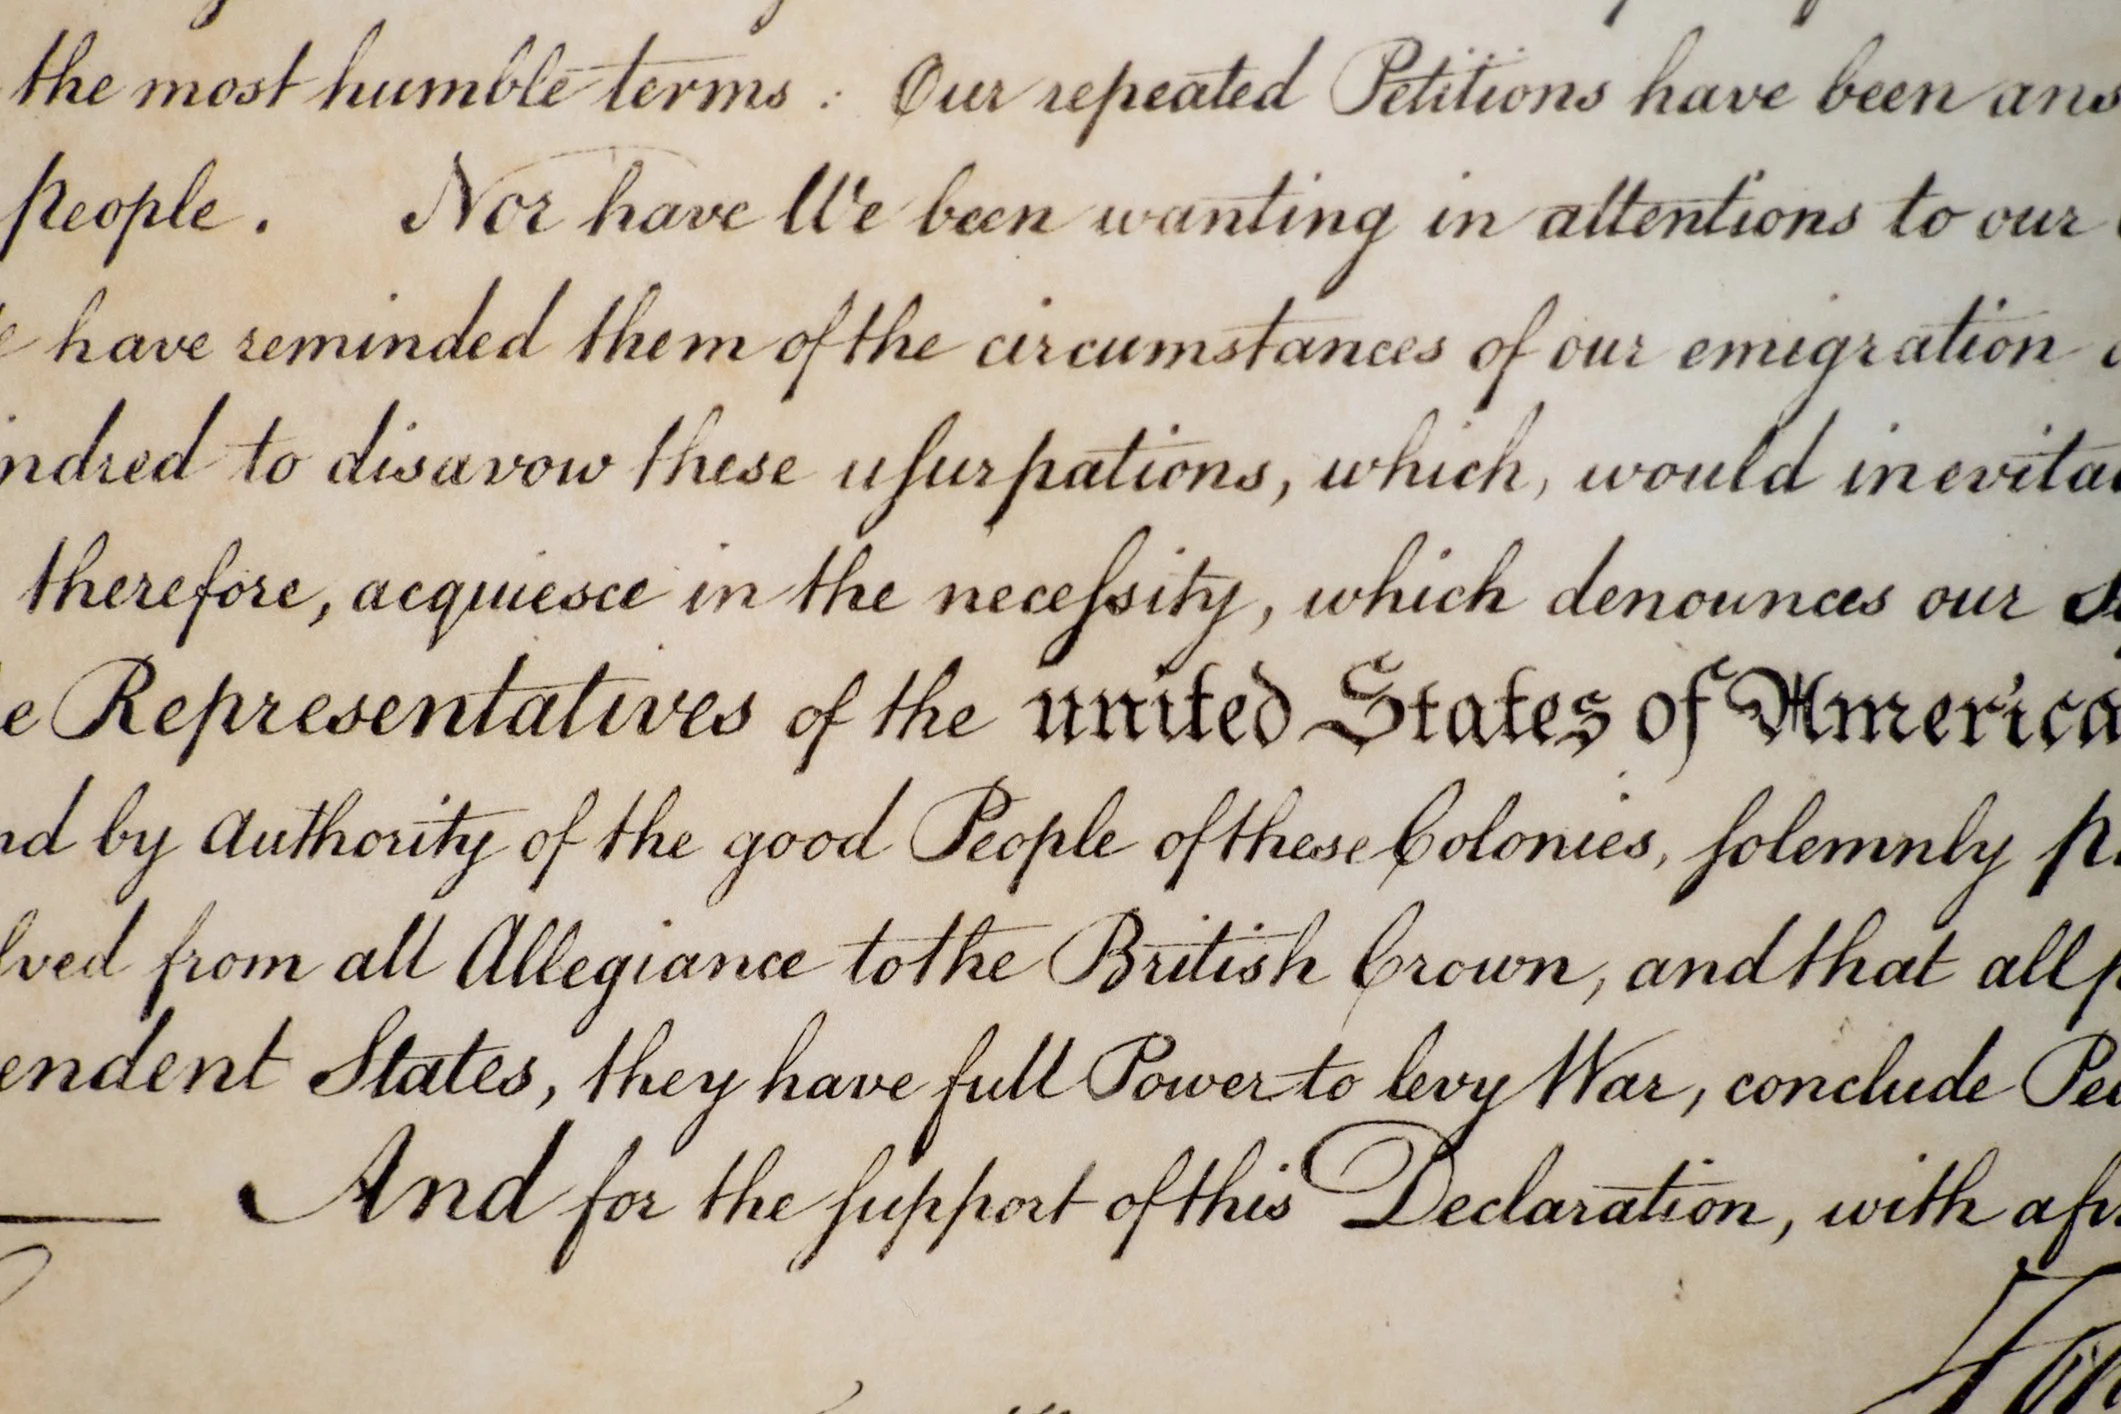 the most humble terms : Our repeated Petitions have been ans
people . Nor have We been wanting in attentions to our
have reminded them of the circumstances of our emigration
ndred to disavow these uſurpations, which, would inevita
therefore, acquiesce in the neceſsity, which denounces our
e Representatives of the united States of America
nd by Authority of the good People of these Colonies, ſolemnly p
lved from all Allegiance to the British Crown, and that all p
endent States, they have full Power to levy War, conclude Pea
And for the ſupport of this Declaration, with a